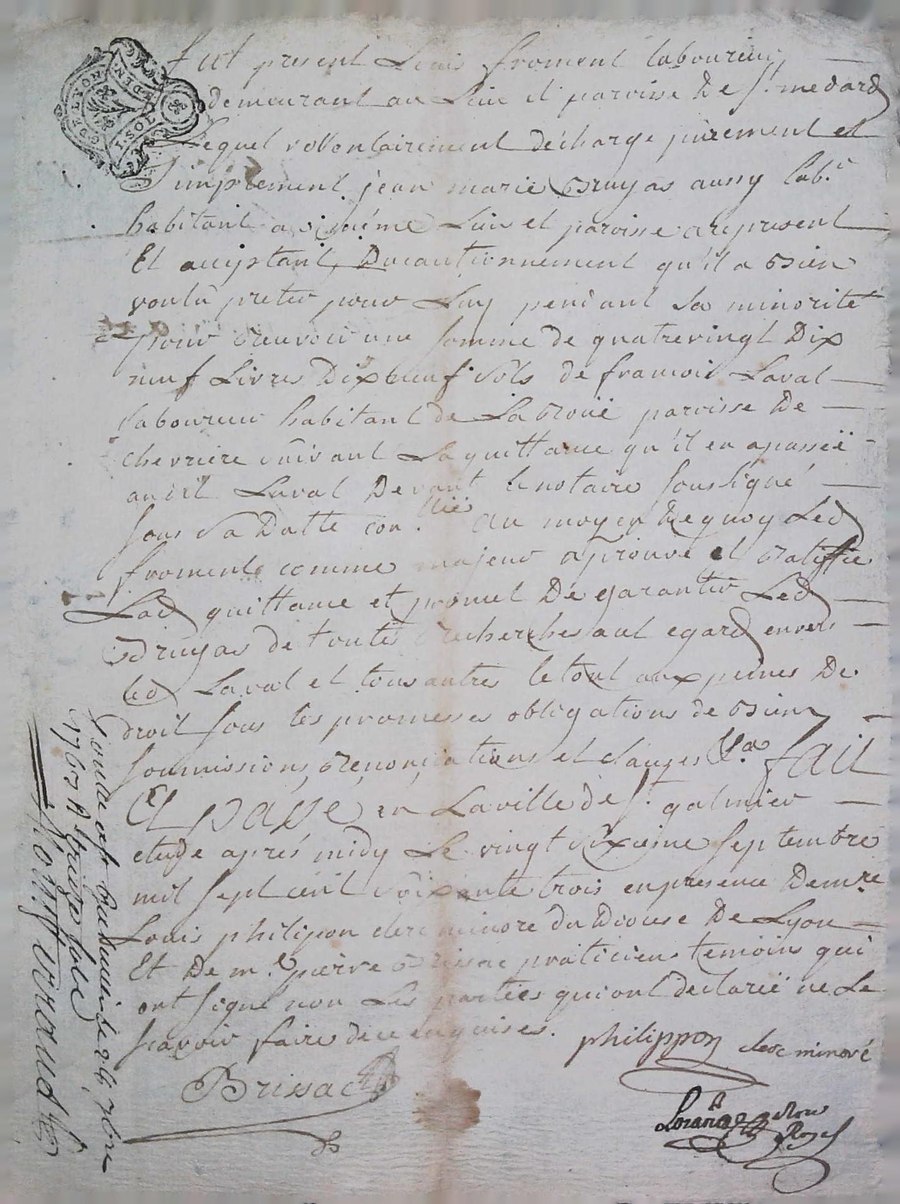 GEN DE LYON
1. SOL
fut present Louis froment laboureur
demeurant au Lieu et paroisse De St. medard
Lequel vollontairement décharge purement et
Simplement jean marie Bruyas aussy labr.
habitant a Lieu et paroisse a cy present
Et acceptant, Ducautionnement qu'il a Bien
voulu preter pour Luy pendant sa minorité
pour recevoir une somme de quatrevingt Dix
neuf Livres Dixneuf sols de francois Laval
laboureur habitant de Labroüe paroisse De
chevriere suivant La quittance qu'il en a passéé
audit Laval Devant le notaire soussigné
sous sa Datte con.llée au moyen Dequoy Led
froment comme majeur aprouve et Ratiffie
Lad quittance et promet De garantir Led
Bruyas de toutes recherches a cet egard envers
led Laval et tous autres le tout aux peines De
droit sous les promesses obligations de Biens
soumissions, Renonciations et clauses &a fait
Et passé en La ville de St. galmier
etude aprés midy Le vingt sixieme septembre
mil sept cent soixante trois en presence De mre
Louis philipon clerc minoré du Diocese De Lyon
Et De me. pierre Brissac praticiens temoins qui
ont signé non Les parties qui ont declaréé ne Le
scavoir faire de ce enquises.
philippon clerc minoré
Brissac
1763